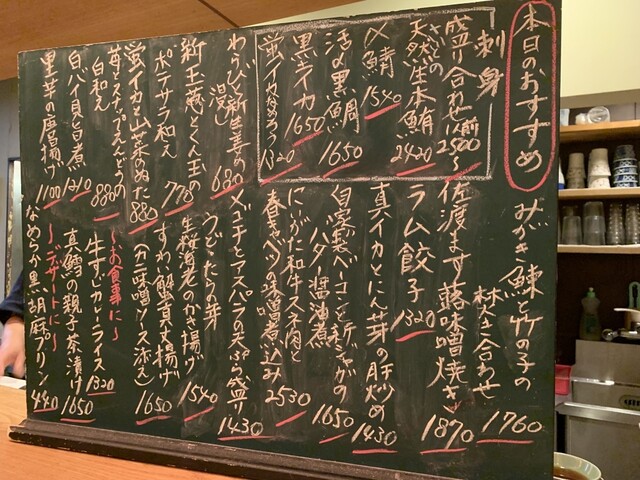 本日のおすすめ
刺身
盛り合わせ一人前2500〜
さどの天然生本鮪 2420
〆鯖 1540
活〆黒鯛 1650
黒ライカ 1650
蛍イカなめろう 1320
わらびと新生姜の浸し 680
新玉葱とくん玉のポテサラ和え 778
蛍イカと山菜のぬた 880
苺とスナップえんどうの白和え 880
白バイ貝旨煮 1210
里芋の唐揚げ 1100
みがき鰊と竹の子の炊き合わせ 1760
佐渡ます蕗味噌焼き 1870
ラム餃子 1320
真イカとにん芽の肝炒め 1430
自家製ベーコンと新じゃがのバター醤油煮 1650
にいがた和牛スネ肉と春キャベツの味噌煮込み 2530
メゴチとアスパラの天ぷら盛り 1430
うど・たらの芽
生桜海老のかき揚げ 1540
ずわい蟹真丈揚げ
(カニ味噌ソース添え) 1650
〜お食事に〜
牛すじカレーライス 1320
真鱈の親子茶漬け 1650
〜デザートに〜
なめらか黒胡麻プリン 440